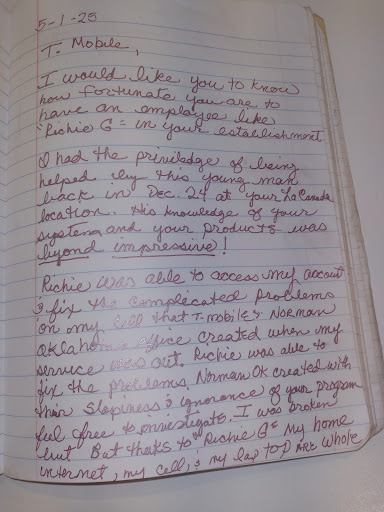 5-1-25
T. Mobile,
I would like you to know
how fortunate you are to
have an employee like
"Richie G" in your establishment
I had the priviledge of being
helped by this young man
back in Dec. 24 at your La Canada
location. His knowledge of your
systems and your products was
beyond impressive!
Richie was able to access my account
& fix the complicated problems
on my cell that T-mobile's Norman
Oklahoma office created when my
service was out. Richie was able to
fix the problems Norman OK created with
their slopiness & ignorance of your program
feel free to investigate. I was broken
but But thanks to "Richie G" My home
internet, my cell, & my lap top ARE whole